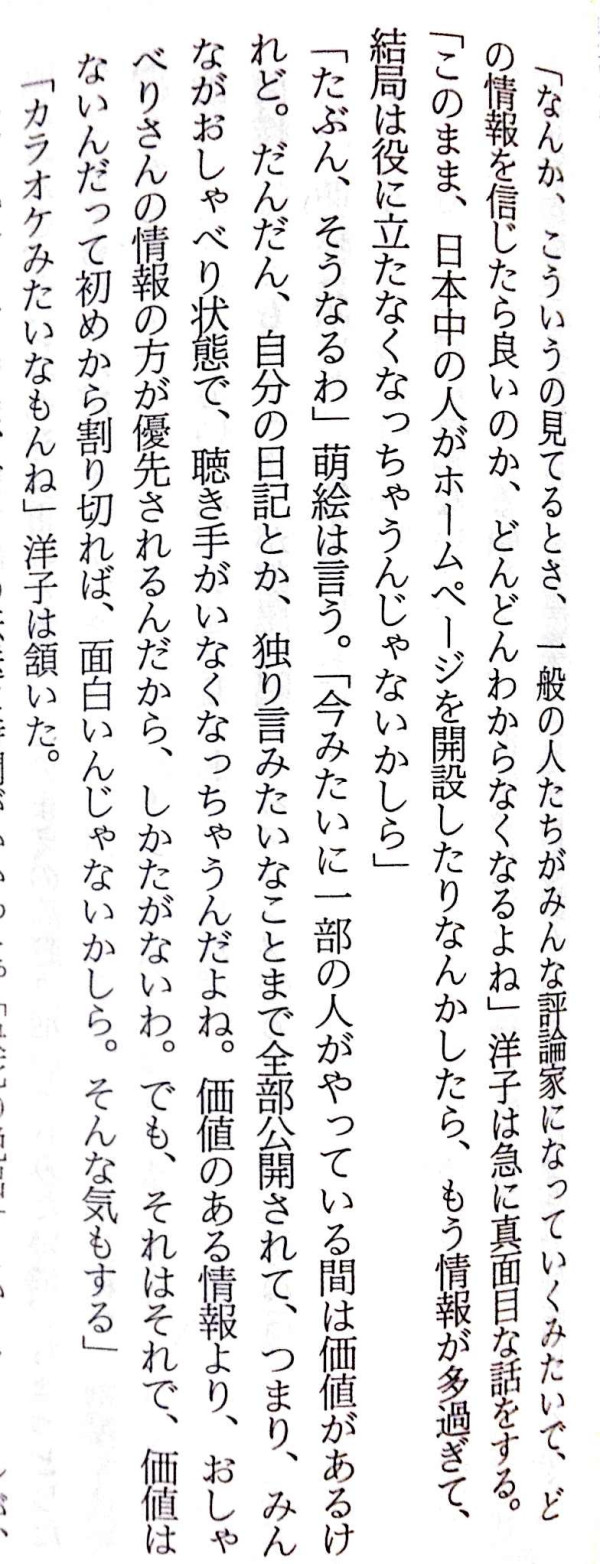 「なんか、こういうの見てるとさ、一般の人たちがみんな評論家になっていくみたいで、ど
の情報を信じたら良いのか、どんどんわからなくなるよね」洋子は急に真面目な話をする。
「このまま、日本中の人がホームページを開設したりなんかしたら、もう情報が多過ぎて、
結局は役に立たなくなっちゃうんじゃないかしら」
「たぶん、そうなるわ」萌絵は言う。「今みたいに一部の人がやっている間は価値があるけ
れど。だんだん、自分の日記とか、独り言みたいなことまで全部公開されて、つまり、みん
ながおしゃべり状態で、聴き手がいなくなっちゃうんだよね。価値のある情報より、おしゃ
べりさんの情報の方が優先されるんだから、しかたがないわ。でも、それはそれで、価値は
ないんだって初めから割り切れば、面白いんじゃないかしら。そんな気もする」
「カラオケみたいなもんね」洋子は頷いた。